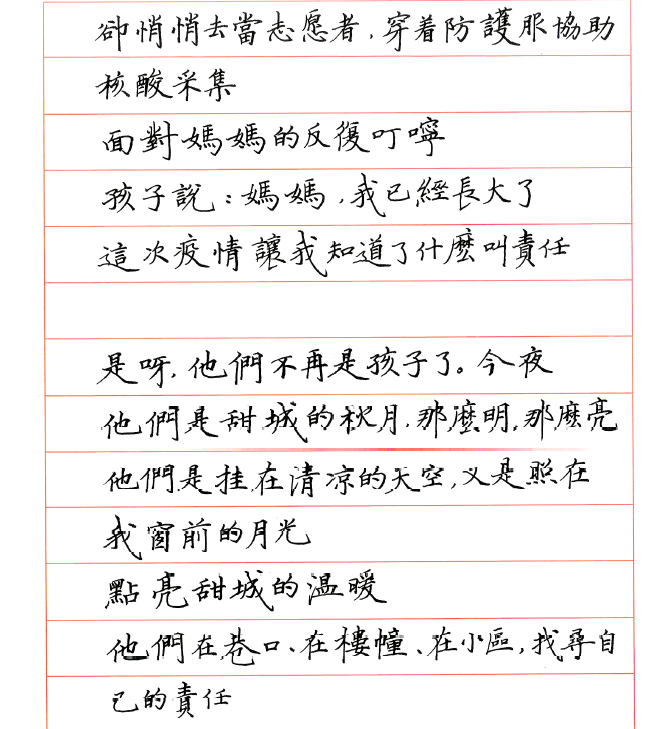 卻悄悄去當志愿者，穿着防護服協助
核酸采集
面對媽媽的反復叮嚀
孩子說：媽媽，我已經長大了
這次疫情讓我知道了什麽叫責任
是呀，他們不再是孩子了。今夜
他們是甜城的秋月，那麽明，那麽亮
他們是挂在清凉的天空，又是照在
我窗前的月光
點亮甜城的温暖
他們在巷口、在樓幢、在小區，找尋自
己的責任